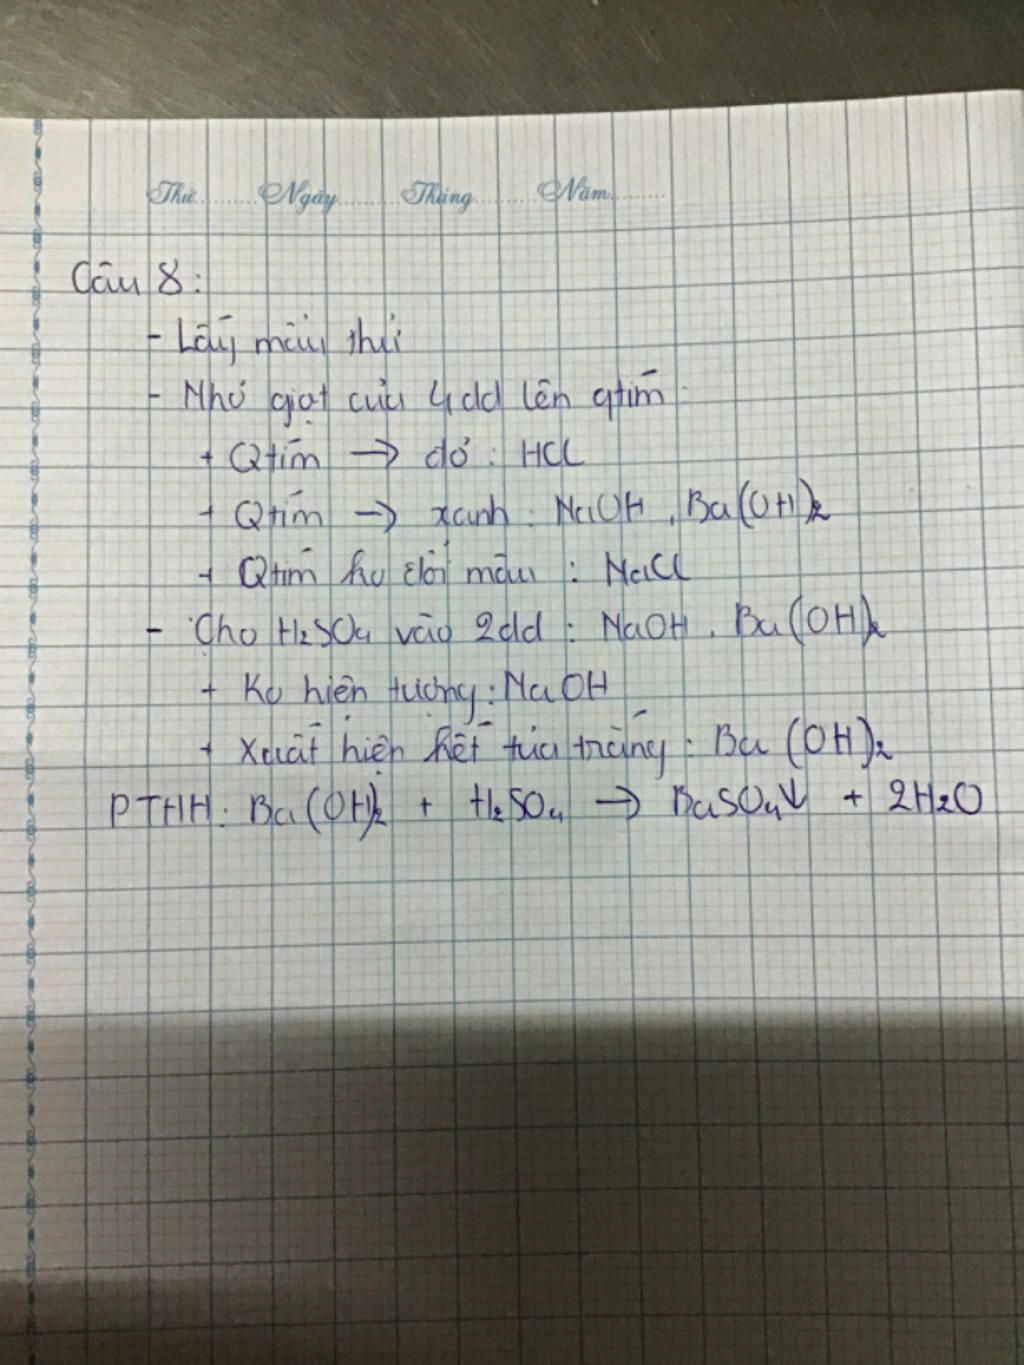 Thứ Ngày Tháng Năm
Câu 8:
- Lấy mẫu thử
- Nhỏ giọt của 4 dd lên qtím
+ Qtím → đỏ : HCl
+ Qtím → xanh : NaOH , Ba(OH)₂
+ Qtím ko đổi màu : NaCl
- Cho H₂SO₄ vào 2dd : NaOH , Ba(OH)₂
+ Ko hiện tượng : NaOH
+ Xuất hiện kết tủa trắng : Ba(OH)₂
PTHH : Ba(OH)₂ + H₂SO₄ → BaSO₄↓ + 2H₂O